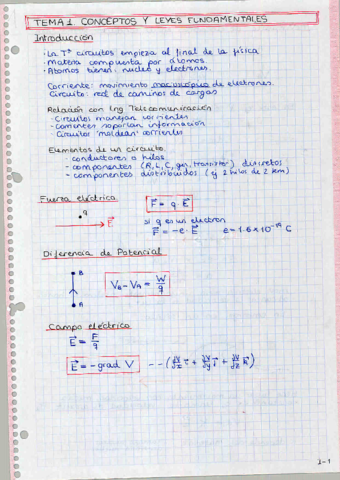 TEMA 1. CONCEPTOS Y LEYES FUNDAMENTALES
Introducción
· La Tª circuitos empieza al final de la física
· Materia compuesta por átomos.
· Atomos tienen: núcleo y electrones.
Corriente: movimiento macroscópico de electrones.
Circuito: red de caminos de cargas
Relación con Ing Telecomunicación
- Circuitos manejan corrientes
- corrientes soportan información
Circuitos "moldean" corrientes
Elementos de un circuito.
- conductores o hilos
- componentes (R, L, C, gen, transistor) discretos
- componentes distribuidos (ej 2 hilos de 2 km)
Fuerza eléctrica
q
E
F = q · E
si q es un electron
F = -e · E e = 1.6 × 10⁻¹⁹ C
Diferencia de Potencial
B
A
V_B - V_A = W/q
Campo eléctrico
E = F/q
E = - grad V = - (∂V/∂x i + ∂V/∂y j + ∂V/∂z k)
1-1